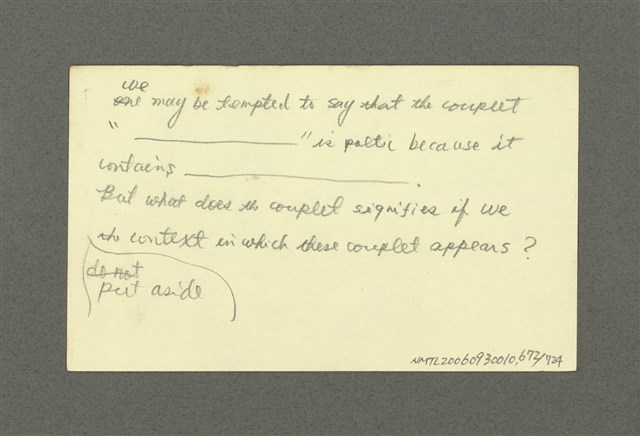 we
one may be tempted to say that the couplet
" ________ " is poetic because it
contains ________ .
But what does the couplet signifies if we
the context in which these couplet appears ?
do not
put aside
NMTL20060930010,672/724